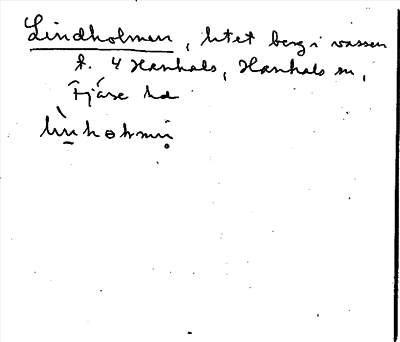 Lindholmen, litet berg i vassen
f. 4 Hanhals, Hanhals sn,
Fjäre hd